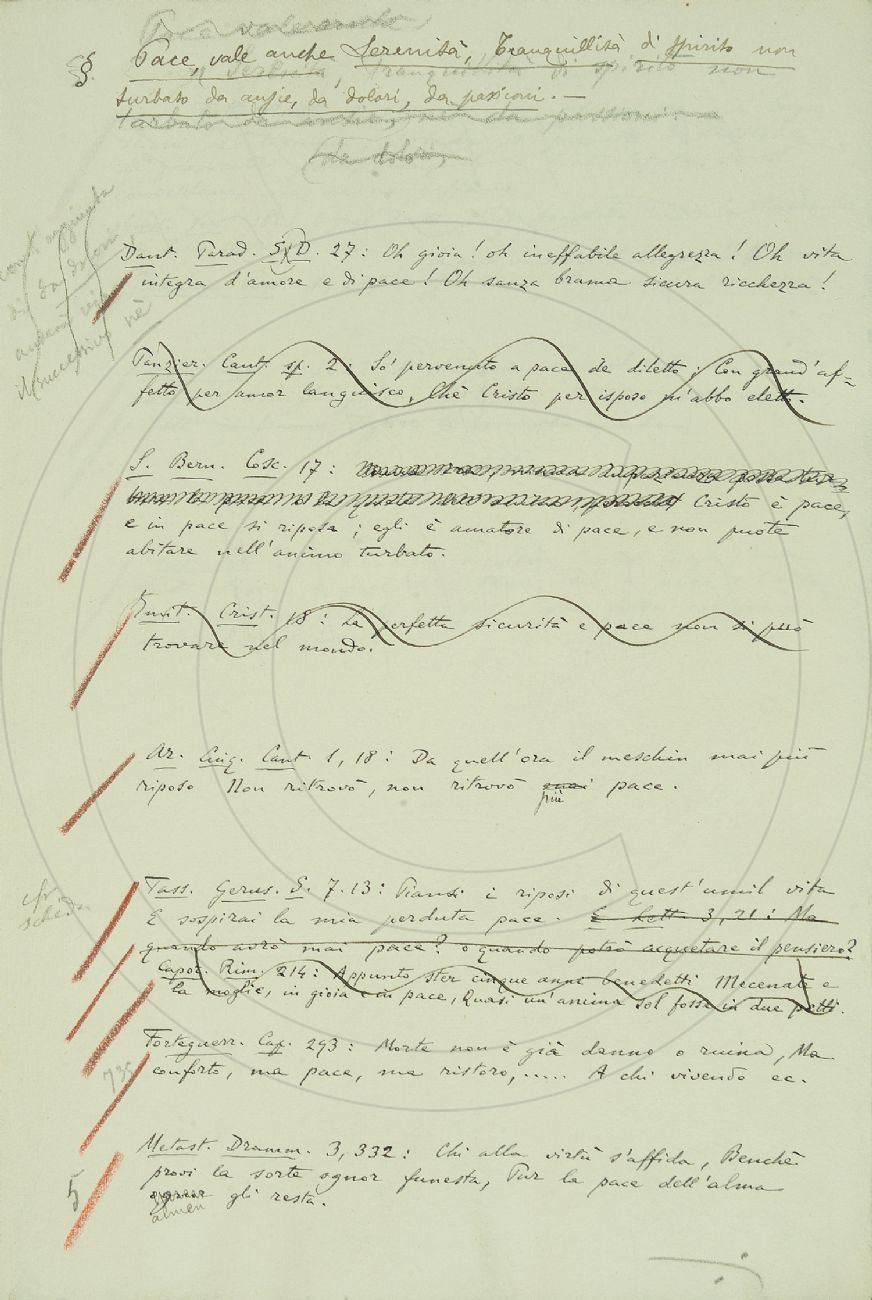 Pace valeranche
§. Pace, vale anche Serenità, Tranquillità di spirito non
e Serenità, Tranquillità di spirito non
turbato da ansie, da dolori, da passioni. —
turbato da ansie, nè da passioni. —
da dolori,
Dant. Parad. S. D. 27: Oh gioia! oh ineffabile allegrezza! Oh vita
integra d'amore e di pace! Oh sanza brama sicura ricchezza!
Panzier. Cant. sp. 2: So' pervenuto a pace de diletto: Con grand' af=
fetto per amor languisco, Chè Cristo per isposo m'abbo eletto.
S. Bern. Cosc. 17:
Cristo è pace,
e in pace si riposa; egli è amatore di pace, e non puote
abitare nell'animo turbato.
Imit. Crist. 18: La perfetta sicurità e pace non si può
trovare nel mondo.
Ar. Cinq. Cant. 1, 18: Da quell'ora il meschin mai più
riposo Non ritrovò, non ritrovò mai pace.
più
cfr
scheda
Tass. Gerus. S. 7. 13: Piansi i riposi di quest'umil vita
E sospirai la mia perduta pace. E Lett. 3, 21: Ma
quando avrò mai pace? o quando potrò acquetare il pensiero?
Capor. Rim. 214: Appunto ster cinque anni benedetti Mecenate e
la moglie, in gioia e in pace, Quasi un'anima sol fosse in due petti.
Forteguerr. Cap. 293: Morte non è già danno o ruina, Ma
conforto, ma pace, ma ristoro,..... A chi vivendo ec.
Metast. Dramm. 3, 332: Chi alla virtù s'affida, Benchè
provi la sorte ognor funesta, Pur la pace dell'alma
ognor gli resta.
almen
5